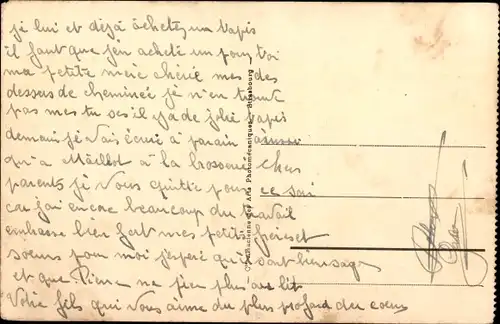 je lui et déjà acheter un tapis
il faut que j'en acheté un pour toi
ma petite mère chérie mes des
dessus de cheminée je n'en trouve
pas mes tu ses il ya de jolie tapis
demain je vais écrire à parain
qu'a Maillot à la brosserie chers
parents je vous quitte pour ce soir
car j'ai encore beaucoup du travail
embrasse bien fort mes petits frères et
soeurs pour moi j'espère qu'il sont bien sages
et que Pierre ne plus au lit
Votre fils qui vous aime du plus profond du coeur
Cie Alsacienne des Arts Photomécaniques - Strasbourg